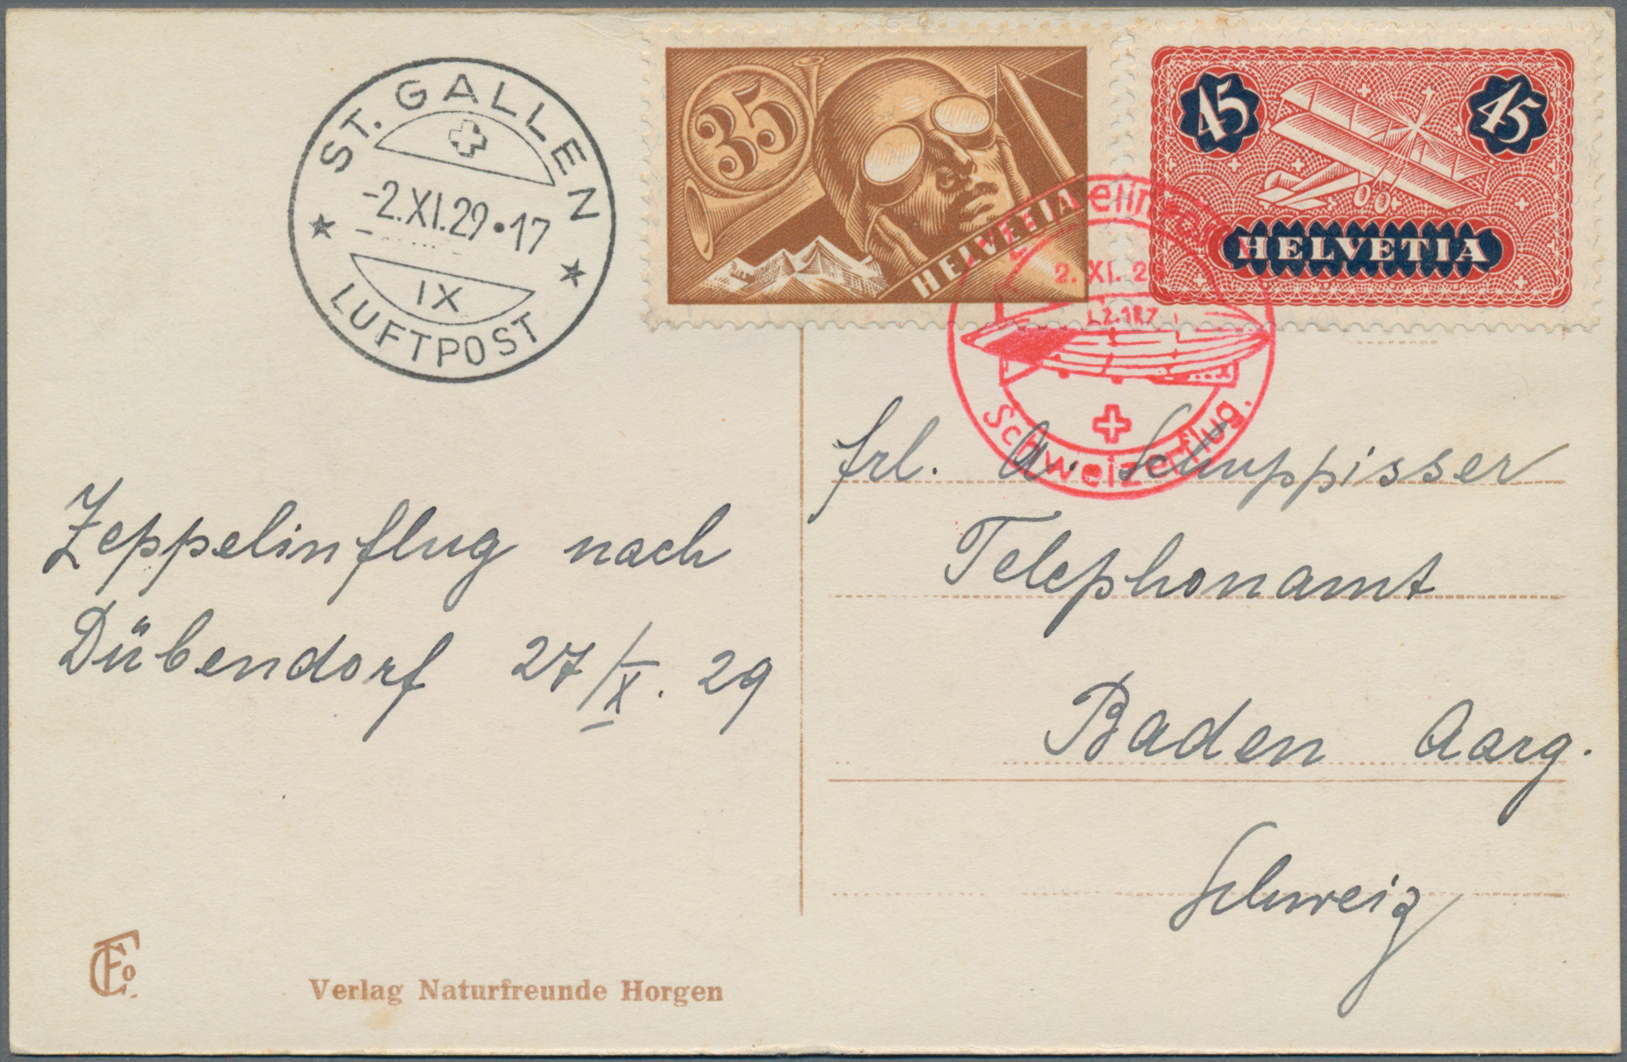 ST. GALLEN
-2.XI.29•17
IX
LUFTPOST
35
HELVETIA
45
45
HELVETIA
2. XI. 2
L.Z.127
Schweizerflug.
frl. A. Schuppisser
Telephonamt
Baden Aarg.
Schweiz
Zeppelinflug nach
Dübendorf 27/X. 29
Verlag Naturfreunde Horgen